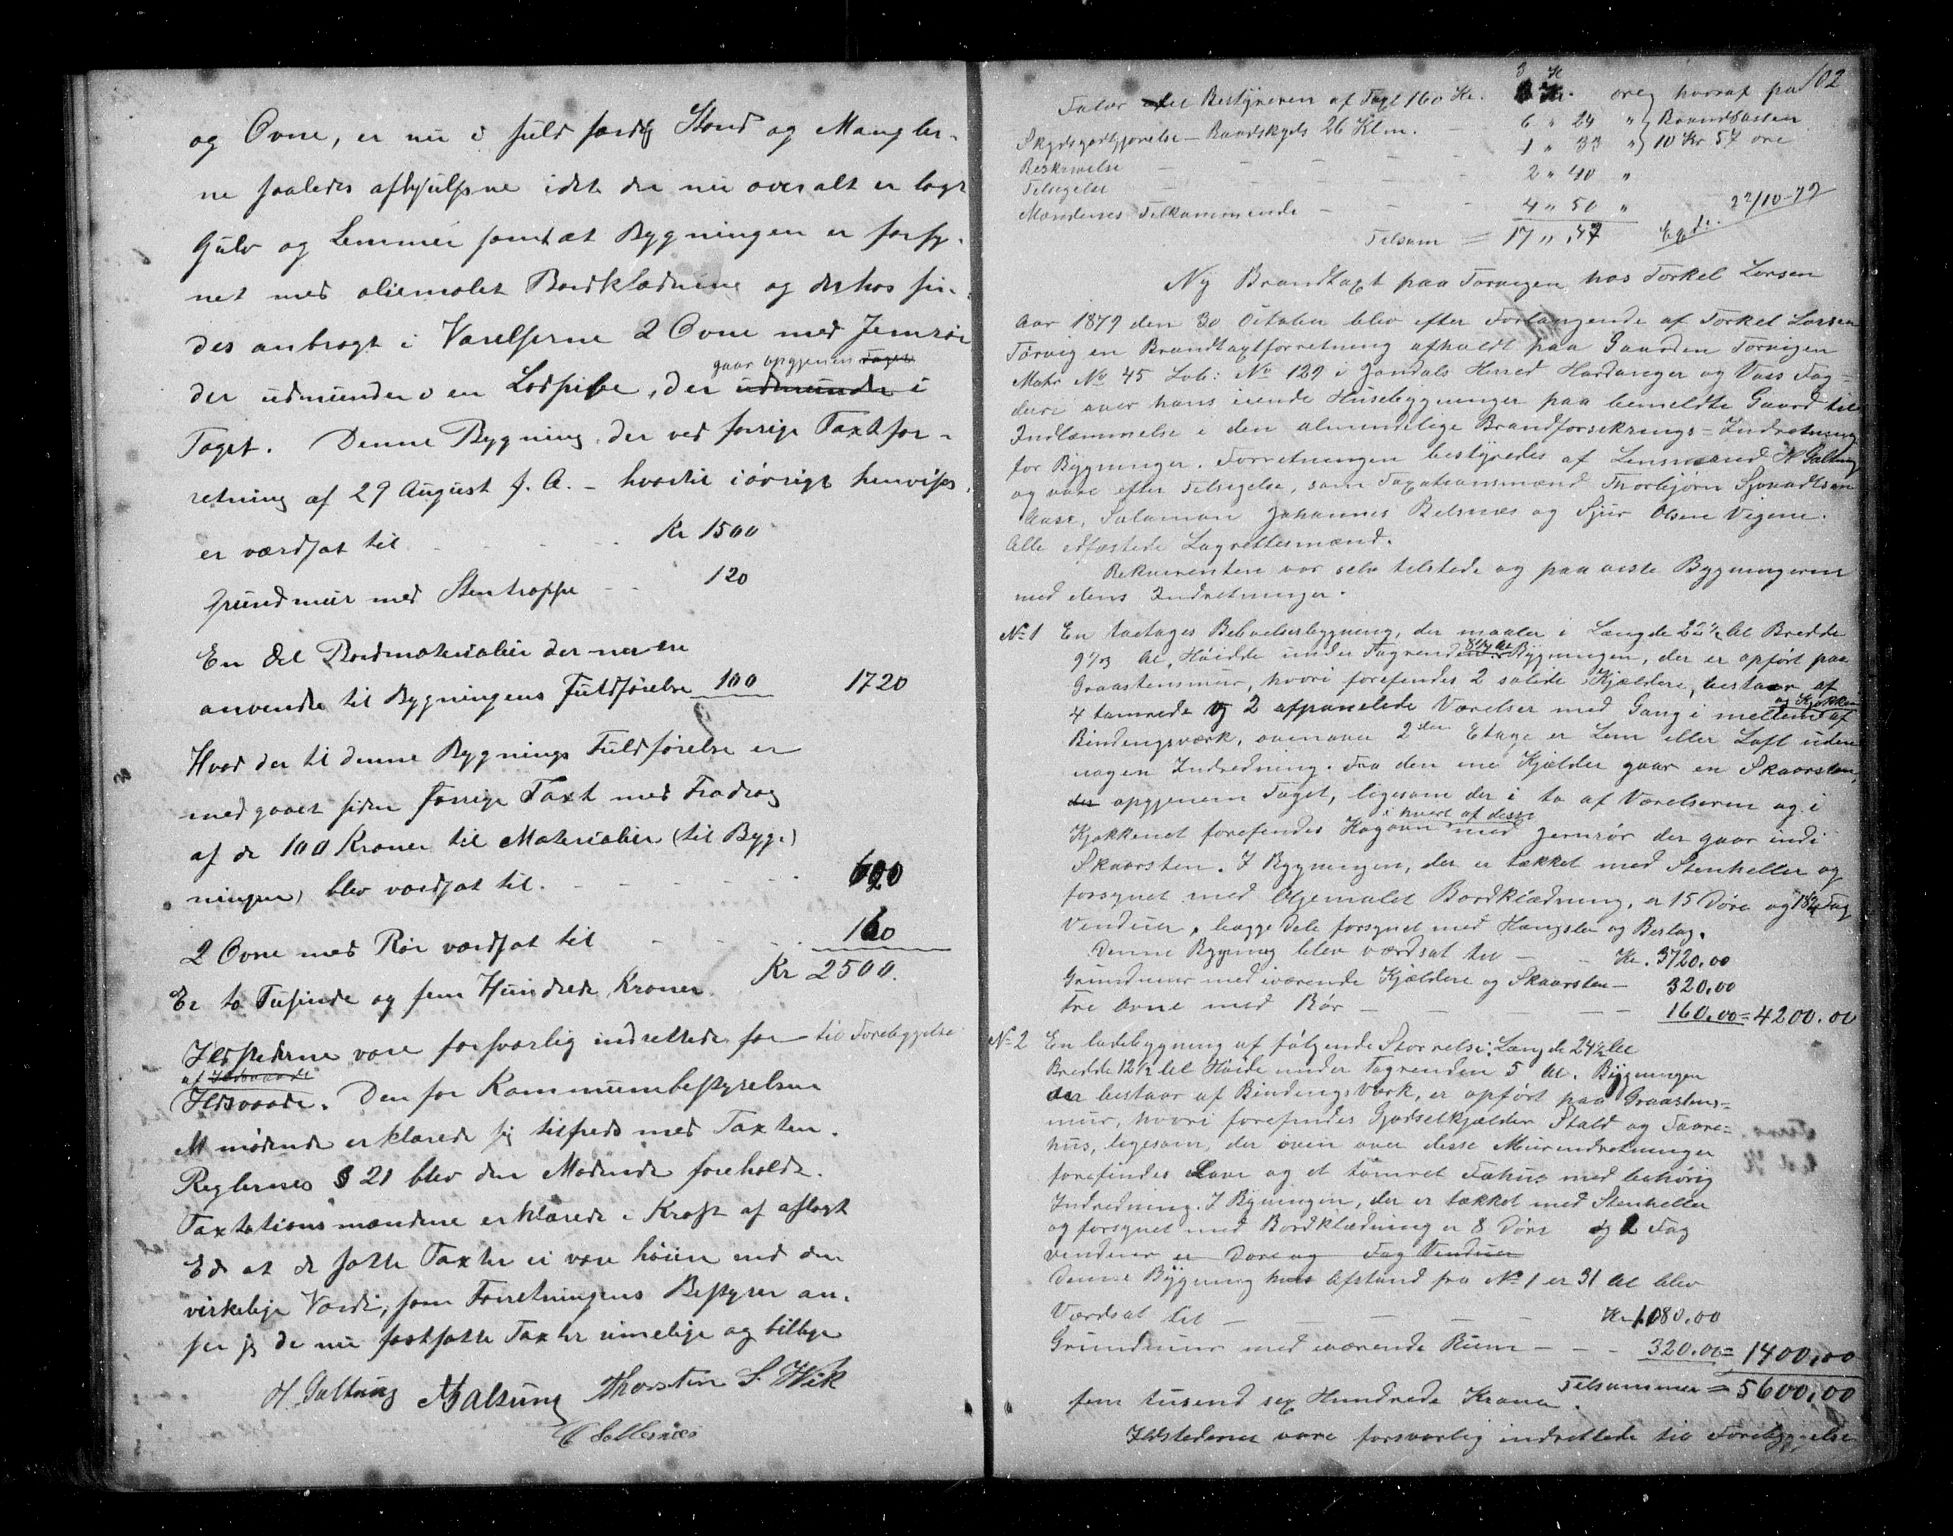 og Ovne, er nu i fuld færdig Stand og Mangler-
ne saaledes afhjulpne idet der nu overalt er lagt
Gulv og Lemmer samt at Bygningen er forsy-
net med oliemalet Bordklædning og derhos fin-
des anbragt i Værelserne 2 Ovne med Jernrør
gaar opgjenem Taget
der udmunder i en Lodpibe, der udmunder i
Taget. Denne Bygning, der ved forrige Taxtfor-
retning af 29 August f. A. – hvortil iøvrigt henvises,
er værdsat til Kr 1500
Grundmuur med Stentrappe 120
En Del Bordmaterialier der
anvendes til Bygningens Fuldførelse 100 1720
Hvad der til denne Bygnings Fuldførelse er
medgaaet siden forrige Taxt med Fradrag
af de 100 Kroner til Materialier (til Byg-
ningen) blev værdsat til. 620
2 Ovne med Rør værdsat til 160
Er to Tusinde og fem Hundrede Kroner. Kr 2500.
Ildstederne vare forsvarlig indrettede for til Forebyggelse
af Ildsvaade
Ildsvaade. Den for Kommunebestyrelsen
Mødende erklærede sig tilfreds med Taxten.
Reglernes § 21 blev den Mødende foreholdt.
Taxtationsmændene erklærede i Kraft af aflagt
Ed at de satte Taxter ei vare høiere end den
virkelige Værdi, som Forretningens Bestyrer an-
ser jeg de nu fastsatte Taxter rimelige og billige
H Galtung Thorsten S. Wik
102
Bestyreren af Taxt 160 Kr. øre, hvoraf paa
Skydsgodtgjørelse – Baadskyds 26 Klm. 6 " 24 " Brandkassen
Beskrivelse – – – 1 " 33 " 10 Kr 57 øre
Tilsigelse – – – 2 " 40 "
Mændenes Tilkommende – – – 4 " 50 " 22/10-79
Tilsam = 17 " 47
Ny Brandtaxt paa Torvigen hos Torkel Larsen
Aar 1879 den 30 October blev efter Forlangende af Torkel Larsen
Torvig en Brandtaxtforretning afholdt paa Gaarden Torvigen
Matr No 45 Løb: No 129 i Jondals Herred Hardanger og Voss Fog-
deri over hans eiende Husebygninger paa bemeldte Gaard til
Indlæmmelse i den almindelige Brandforsikrings-Indretning
for Bygninger. Forretningen bestyredes af Lensmand N Galtung
og vare efter Tilsigelse, som Taxationsmænd Thorbjørn Sjovatsen
Aase, Salamon Johannes Belsnæs og Sjur Olsen Vigene.
Alle edfæstede Lagrettesmænd.
Rekvirenten var selv tilstede og paaviste Bygningerne
med dens Indretninger.
No 1 En toetages Beboelsesbygning, der maaler i Længde 22 1/2 Al Bredde
9 1/2 Al, Høide under Tagrenden 8 1/4 Al Bygningen, der er opført paa
Graastensmur, hvori forefindes 2 solide Kjældere, bestaar af
og Kjøkken
4 tømrede og 2 afpanelede Værelser med Gang i mellem af
Bindingsværk, ovenover 2den Etage er Lem eller Loft uden
nogen Indredning. Fra den ene Kjælder gaar en Skaarsten,
der opgjenem Taget, ligesom der i to af Værelserne og i
i hvert af disse
Kjøkkenet forefindes Kogovn med Jernrør der gaar indi
Skaarsten. I Bygningen, der er tækket med Stenheller og
forsynet med Oljemalet Bordklædning, er 15 Døre og 18 Fag
Venduer, begge Dele forsynet med Hængsler og Beslag.
Denne Bygning blev værdsat til – – Kr. 3720.00
Grundmur med iværende Kjældere og Skaarsten – 320.00
Tre Ovne med Rør – – – 160.00 = 4200.00
No 2 En ladebygning af følgende Størrelse: Længde 24 1/2 Al
Bredde 12 1/2 Al Høide under Tagrenden 5 Al. Bygningen
der bestaar af Bindingsværk, er opført paa Graastens-
mur, hvori forefindes Gjødselkjælder Stald og Faare-
hus, ligesom der oven over disse Murindretninger
forefindes Lave og et tømret Fæhus med behørig
Indredning. I Bygningen, der er tækket med Stenheller
og forsynet med Bordklædning er 8 Døre og 2 Fag
venduer er Døre og Fag Venduer
Denne Bygning hvis Afstand fra No 1 er 31 Al blev
Værdsat til – – – Kr 1080.00
Grundmur med iværende Rum – – – 320.00 = 1400,00
Tilsammen = 5600,00
fem tusend sex Hundrede Kroner.
Ildstederne vare forsvarlig indrettede til Forebyggelse